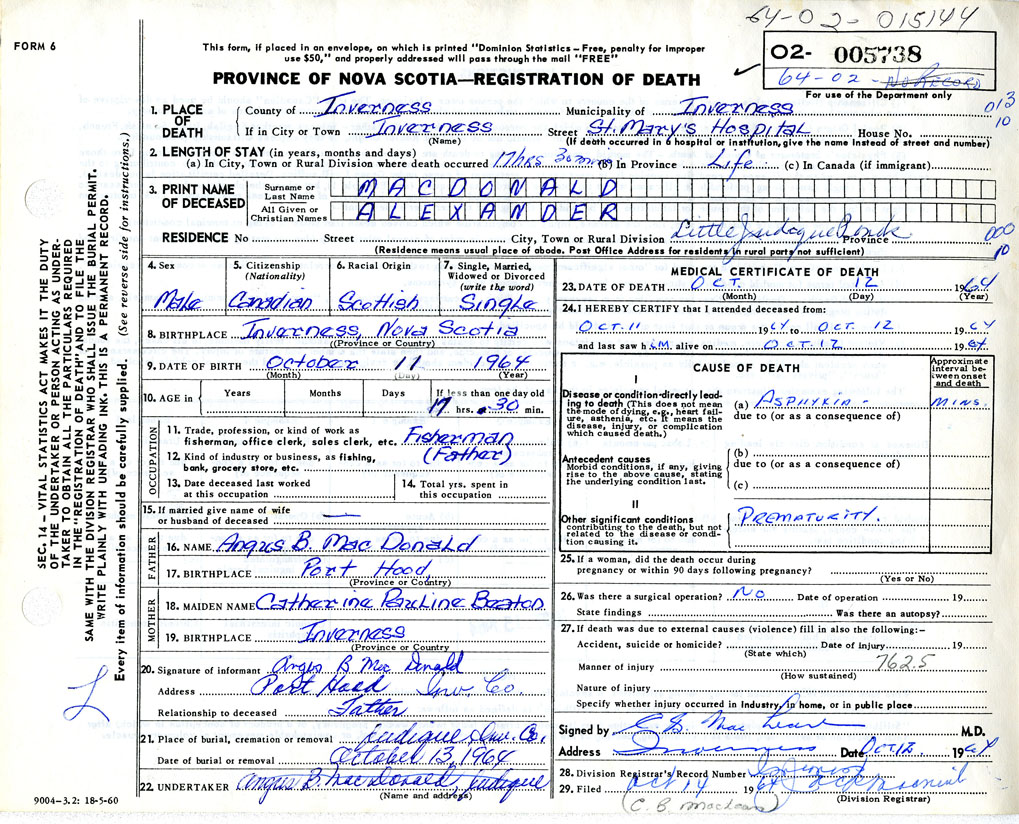 64-02-015144
FORM 6
This form, if placed in an envelope, on which is printed "Dominion Statistics – Free, penalty for improper
use $50," and properly addressed will pass through the mail "FREE"
PROVINCE OF NOVA SCOTIA—REGISTRATION OF DEATH
O2- 005738
64-02- No Record
For use of the Department only
013
10
1. PLACE OF DEATH
County of Inverness Municipality of Inverness
If in City or Town Inverness Street St. Mary's Hospital House No.
(Name) (If death occurred in a hospital or institution, give the name instead of street and number)
2. LENGTH OF STAY (in years, months and days)
(a) In City, Town or Rural Division where death occurred 17 hrs 30 mins (b) In Province Life (c) In Canada (if immigrant)
3. PRINT NAME OF DECEASED
Surname or Last Name MACDONALD
All Given or Christian Names ALEXANDER
RESIDENCE No Street City, Town or Rural Division Little Judique Province
000
10
(Residence means usual place of abode. Post Office Address for residents in rural parts not sufficient)
4. Sex Male
5. Citizenship (Nationality) Canadian
6. Racial Origin Scottish
7. Single, Married, Widowed or Divorced (write the word) Single
8. BIRTHPLACE Inverness, Nova Scotia
(Province or Country)
9. DATE OF BIRTH October 11 1964
(Month) (Day) (Year)
10. AGE in Years Months Days If less than one day old
17 hrs. 30 min.
OCCUPATION
11. Trade, profession, or kind of work as
fisherman, office clerk, sales clerk, etc. Fisherman
12. Kind of industry or business, as fishing, (Father)
bank, grocery store, etc.
13. Date deceased last worked
at this occupation
14. Total yrs. spent in
this occupation
15. If married give name of wife
or husband of deceased —
FATHER
16. NAME Angus B. Mac Donald
17. BIRTHPLACE Port Hood
(Province or Country)
MOTHER
18. MAIDEN NAME Catherine Pauline Beaton
19. BIRTHPLACE Inverness
(Province or Country
20. Signature of informant Angus B Mac Donald
Address Port Hood Inv Co.
Relationship to deceased Father
21. Place of burial, cremation or removal Judique, Inv. Co.
Date of burial or removal October 13, 1964
22. UNDERTAKER Angus B. MacDonald, Judique
(Name and address)
9004–3.2: 18-5-60
MEDICAL CERTIFICATE OF DEATH
23. DATE OF DEATH Oct. 12 1964
(Month) (Day) (Year)
24. I HEREBY CERTIFY that I attended deceased from:
Oct. 11 1964 to Oct. 12 1964
and last saw him alive on Oct. 12 1964
CAUSE OF DEATH
Approximate interval between onset and death
I
Disease or condition directly leading to death (This does not mean the mode of dying, e.g., heart failure, asthenia, etc. It means the disease, injury, or complication which caused death.)
(a) ASPHYXIA - MINS.
due to (or as a consequence of)
Antecedent causes
Morbid conditions, if any, giving rise to the above cause, stating the underlying condition last.
(b)
due to (or as a consequence of)
(c)
II
Other significant conditions
contributing to the death, but not related to the disease or condition causing it.
PREMATURITY.
25. If a woman, did the death occur during
pregnancy or within 90 days following pregnancy?
(Yes or No)
26. Was there a surgical operation? No Date of operation 19
State findings Was there an autopsy?
27. If death was due to external causes (violence) fill in also the following:–
Accident, suicide or homicide? Date of injury 19
(State which)
Manner of injury 762.5
(How sustained)
Nature of injury
Specify whether injury occurred in Industry, in home, or in public place
Signed by M.D.
Address Inverness Date Oct 12 1964
28. Division Registrar's Record Number
29. Filed Oct 14 1964
(C. B. MacLean) (Division Registrar)
SEC. 14 – VITAL STATISTICS ACT MAKES IT THE DUTY
OF THE UNDERTAKER OR PERSON ACTING AS UNDER-
TAKER TO OBTAIN ALL THE PARTICULARS REQUIRED
IN THE "REGISTRATION OF DEATH" AND TO FILE THE
SAME WITH THE DIVISION REGISTRAR WHO SHALL ISSUE THE BURIAL PERMIT.
WRITE PLAINLY WITH UNFADING INK. THIS IS A PERMANENT RECORD.
Every item of information should be carefully supplied. (See reverse side for instructions.)
L